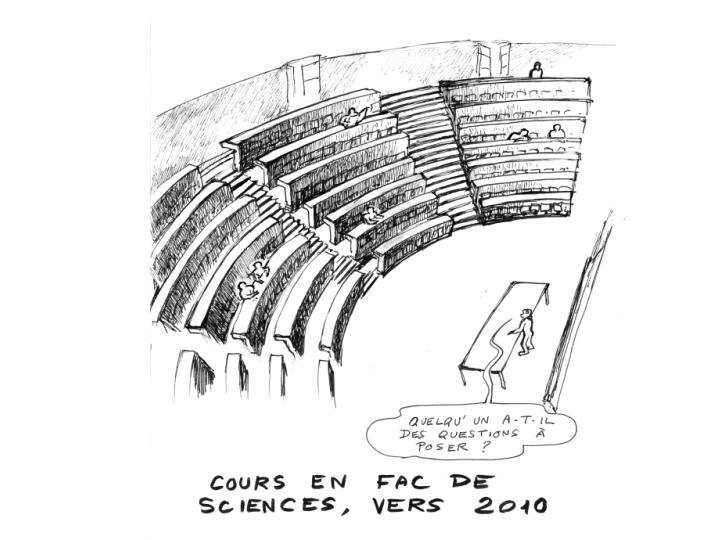 QUELQU'UN A-T-IL
DES QUESTIONS À
POSER ?
COURS EN FAC DE
SCIENCES, VERS 2010